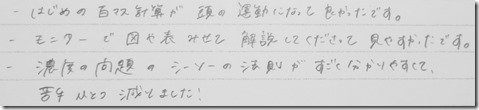 - はじめの百マス計算が頭の運動になって良かったです。
- モニターで図や表みせて解説してくださって見やすかったです。
- 濃度の問題のシーソーの法則がすごく分かりやすくて、
苦手ひとつ減りました!